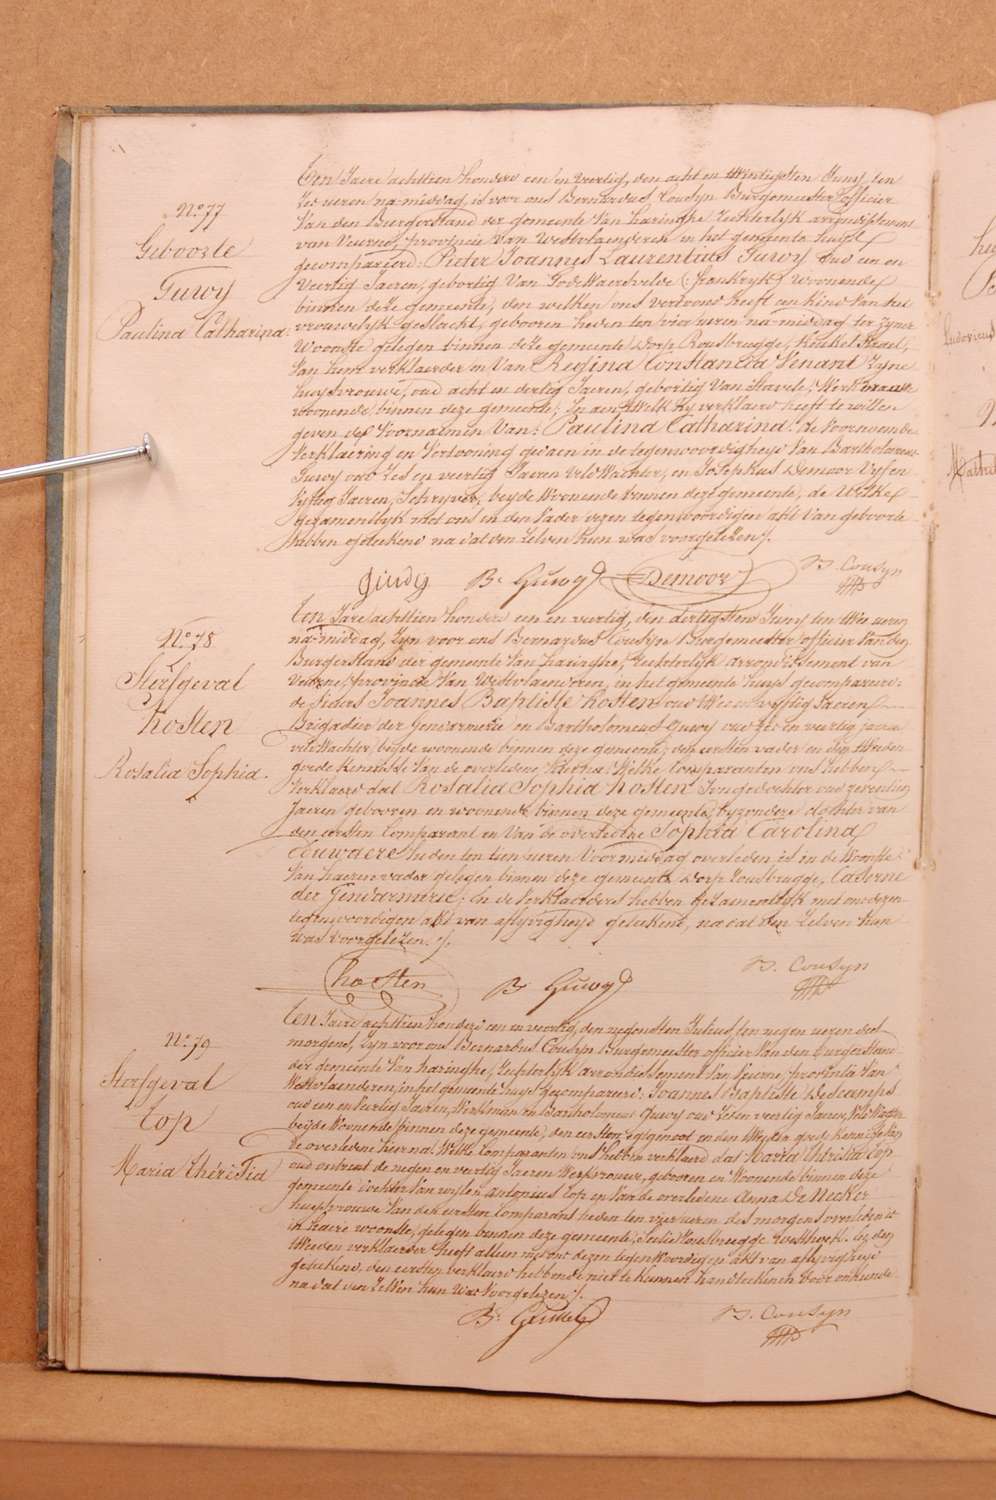 N.o 77
Geboorte
Guwÿ
Paulina Catharina.
Ten Jaere achttien honderd een en veertig, den acht en twintigsten Juny, ten
zes ueren na-middag, is voor ons Bernardus Cousyn Burgemeester officier
van den Burgerstand der gemeente van Haringhe Rechterlyk arrondissement
van Veurne, provincie van Westvlaenderen in het gemeente huys
gecompareerd. Pieter Joannes Laurentius Guwÿ oud een en
veertig Jaeren, gebortig van Godewaersvelde (frankryk) woonende
binnen deze gemeente, den welken ons vertoond heeft een kind van het
vrouwelyk geslacht, gebooren heden ten vier ueren na-middag ter zyner
Woonste gelegen binnen deze gemeente Dorp Rousbrugge,
van hem verklaerder en van Regina Constancia Venant zyne
huysvrouwe, oud acht en dertig Jaeren, gebortig van Stavele, Werkvrauwe
woonende binnen deze gemeente; In aen Welk hy verklaerd heeft te willen
geven des voornaemen van: Paulina Catharina. de voornoemde
verklaering en vertooning gedaen in de tegenwoordigheyd van Bartholomeus
Guwy oud zes en veertig Jaeren veld Wachter, en Josephus Demoor vyf en
vyftig Jaeren, Schryver, beyde Woonende binnen deze gemeente, de welke
gezamentlyk met ons en den vader dezen tegenwoordigen akt van geboorte
hebben geteekend na dat den zelven hun was voorgelezen ./.
Guwÿ B. Guwÿ Demoor B. Cousyn
N.o 78
Sterfgeval
hosten
Rosalia Sophia.
Ten Jare achttien honderd een en veertig, den dertigsten Juny ten twee ueren
na-middag, zyn voor ons Bernardus Cousyn Burgemeester officier van den
Burgerstand der gemeente van Haringhe, Rechterlyk arrondissement van
Veurne, provincie van Westvlaenderen, in het gemeente huys gecompareerd:
de Sieurs Joannes Baptiste hosten oud twee en vyftig Jaeren
Brigadier der Gendarmerie en Bartholomeus Guwy oud zes en veertig jaeren
veld Wachter, beyde woonende binnen deze gemeente; den eersten vader en den tweeden
goede kennisse van de overledene hierna; Welke Comparanten ons hebben
verklaerd dat Rosalia Sophia hosten Jongedochter oud zeventien
Jaeren gebooren en woonende binnen deze gemeente, byzondere dochter van
den eersten Comparant en van de overledene Sophia Carolina
heden ten tien ueren voormiddag overleden is in de Woonste
van haeren vader gelegen binnen deze gemeente Dorp Rousbrugge, Caserne
der Gendarmerie; En de verklaerders hebben gezamentlyk met ons dezen
tegenwoordigen akt van aflyvigheyd geteekend, na dat den zelven hun
was voorgelezen. ./.
hosten B. Guwÿ B. Cousyn
N.o 79
Sterfgeval
Cop
Maria Theresia
Ten Jaere achttien honderd een en veertig, den negensten Julius, ten negen ueren des
morgens, zyn voor ons Bernardus Cousyn Burgemeester officier van den Burgerstand
der gemeente van Haringhe, Rechterlyk arrondissement van Veurne, provincie van
Westvlaenderen, in het gemeente huys gecompareerd: Joannes Baptiste Descamps
oud een en veertig Jaeren, Werkman en Bartholomeus Guwy oud zes en veertig Jaeren, veld Wachter
beyde Woonende binnen deze gemeente, den eersten egtgenoot en den tweeden goede kennisse van
de overledene hierna: Welke Comparanten ons hebben verklaerd dat Maria Theresia Cop
oud ontrent de negen en veertig Jaeren Werkvrouwe, gebooren en Woonende binnen deze
gemeente dochter van wylen Antonius Cop en van de overledene Anna De Necker
huysvrouwe van den eersten Comparant heden ten vier ueren des morgens overleden is
in haere woonste, gelegen binnen deze gemeente, En den
tweeden verklaerder heeft alleen met ons dezen tegenwoordigen akt van aflyvigheyd
geteekend, den eersten verklaerd hebbende niet te kunnen handteekenen door onkunde
na dat den zelven hun was voorgelezen ./.
B. Guwÿ B. Cousyn